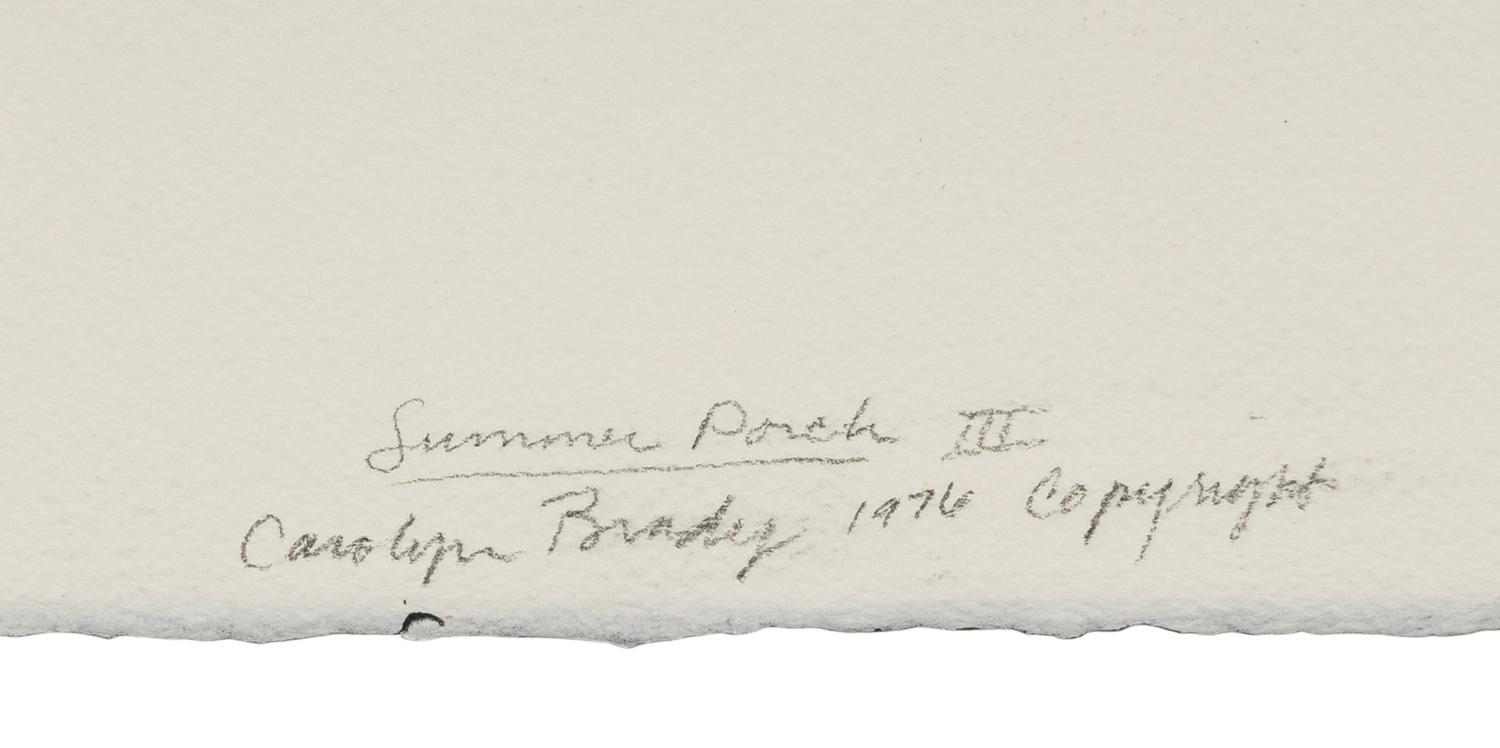 Summer Porch III
Carolyn Brady 1976 Copyright